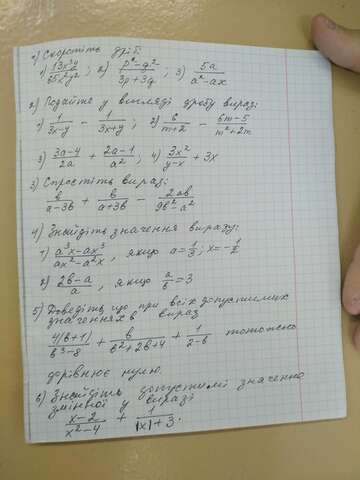 1) Скоротіть дріб:
1) 13x³y / 25x²y²; 2) p²-q² / 3p+3q; 3) 5a / a²-ax
2) Подайте у вигляді дробу вираз:
1) 1/3x-y - 1/3x+y; 2) 6/m+2 - 6m-5/m²+2m
3) 3a-4/2a + 2a-1/a²; 4) 3x²/y-x + 3x
3) Спростіть вираз:
b/a-3b + b/a+3b - 2ab/9b²-a²
4) Знайдіть значення виразу:
1) a³x-ax³/ax²-a²x, якщо a=1/3; x=-1/2
2) 2b-a/a, якщо a/b=3
5) Доведіть що при всіх допустимих
значеннях b вираз
4(b+1)/b³-8 + b/b²+2b+4 + 1/2-b тотожно
дорівнює нулю.
6) Знайдіть допустимі значення
змінної у виразі
x-2/x²-4 + 1/|x|+3.